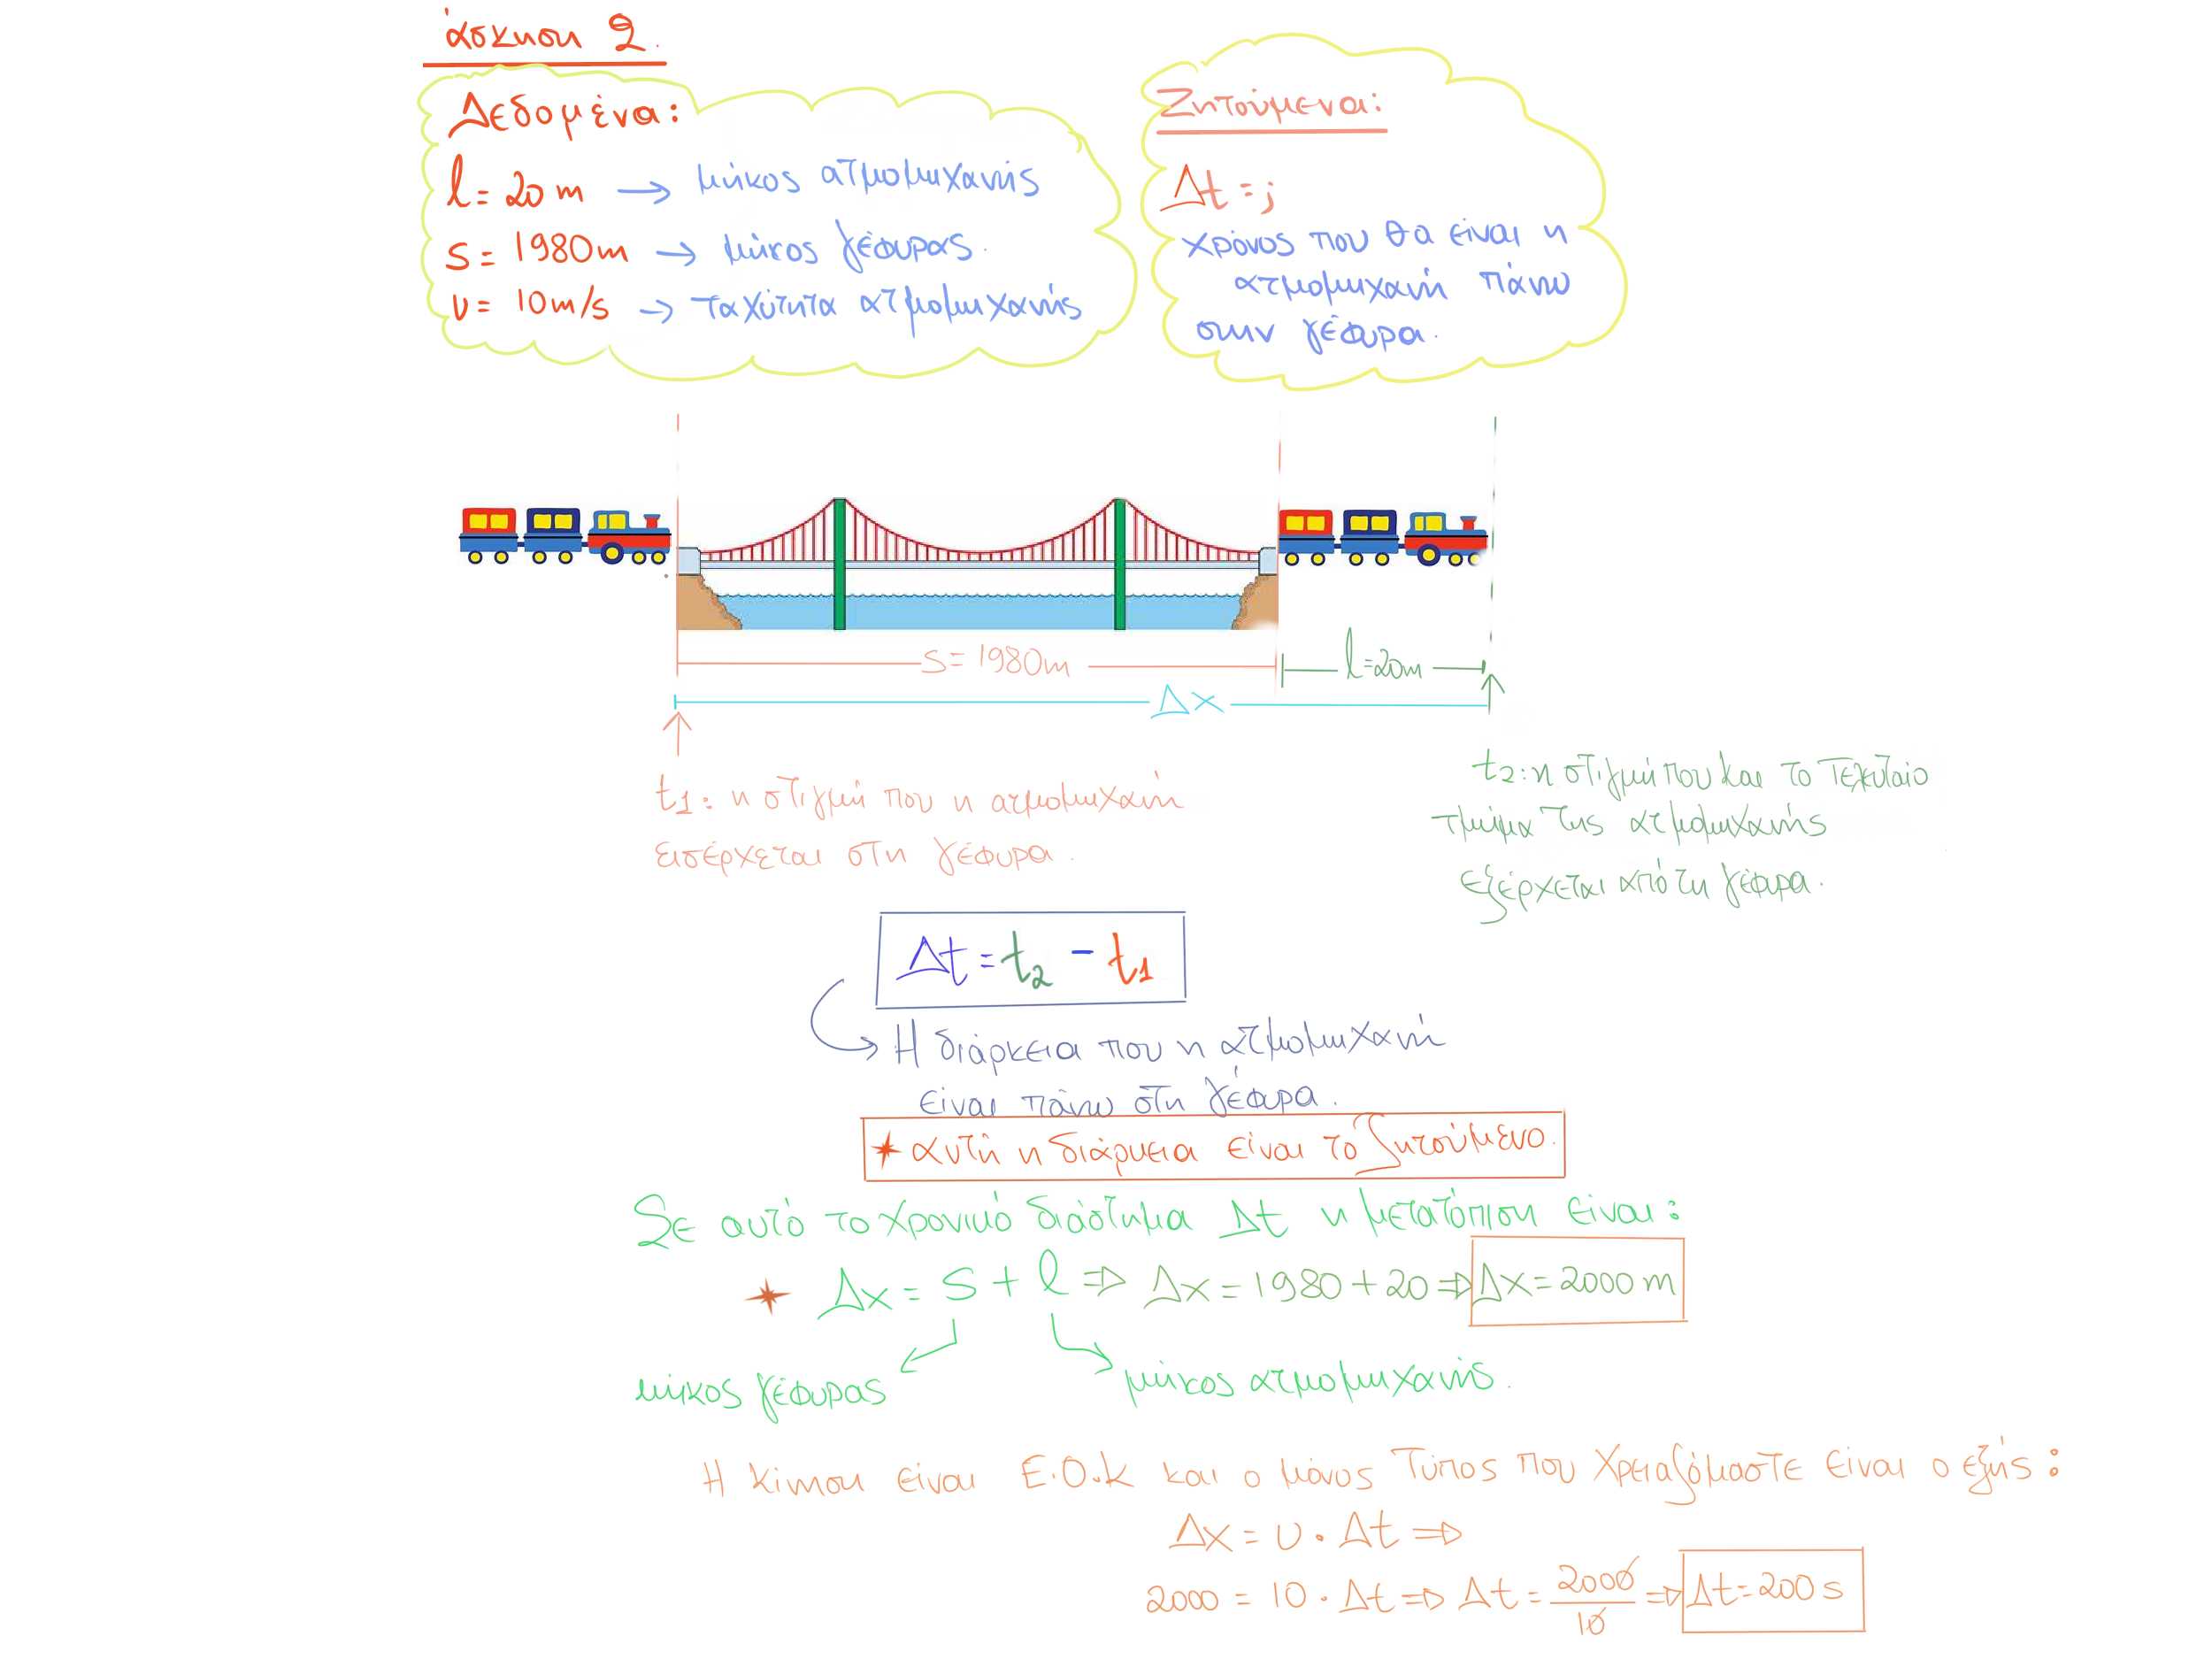 άσκηση 2.
Δεδομένα:
l = 20 m → μήκος ατμομηχανής
s = 1980m → μήκος γέφυρας.
υ = 10m/s → ταχύτητα ατμομηχανής
Ζητούμενα:
Δt = ;
χρόνος που θα είναι η
ατμομηχανή πάνω
στην γέφυρα.
s = 1980m
l = 20m
Δx
t1: η στιγμή που η ατμομηχανή
εισέρχεται στη γέφυρα.
t2: η στιγμή που και το τελευταίο
τμήμα της ατμομηχανής
εξέρχεται από τη γέφυρα.
Δt = t2 - t1
Η διάρκεια που η ατμομηχανή
είναι πάνω στη γέφυρα.
* αυτή η διάρκεια είναι το ζητούμενο.
Σε αυτό το χρονικό διάστημα Δt η μετατόπιση είναι:
* Δx = s + l ⇒ Δx = 1980 + 20 ⇒ Δx = 2000 m
μήκος γέφυρας
μήκος ατμομηχανής.
Η κίνηση είναι Ε.Ο.Κ και ο μόνος τύπος που χρειαζόμαστε είναι ο εξής:
Δx = υ · Δt ⇒
2000 = 10 · Δt ⇒ Δt = 2000/10 ⇒ Δt = 200 s